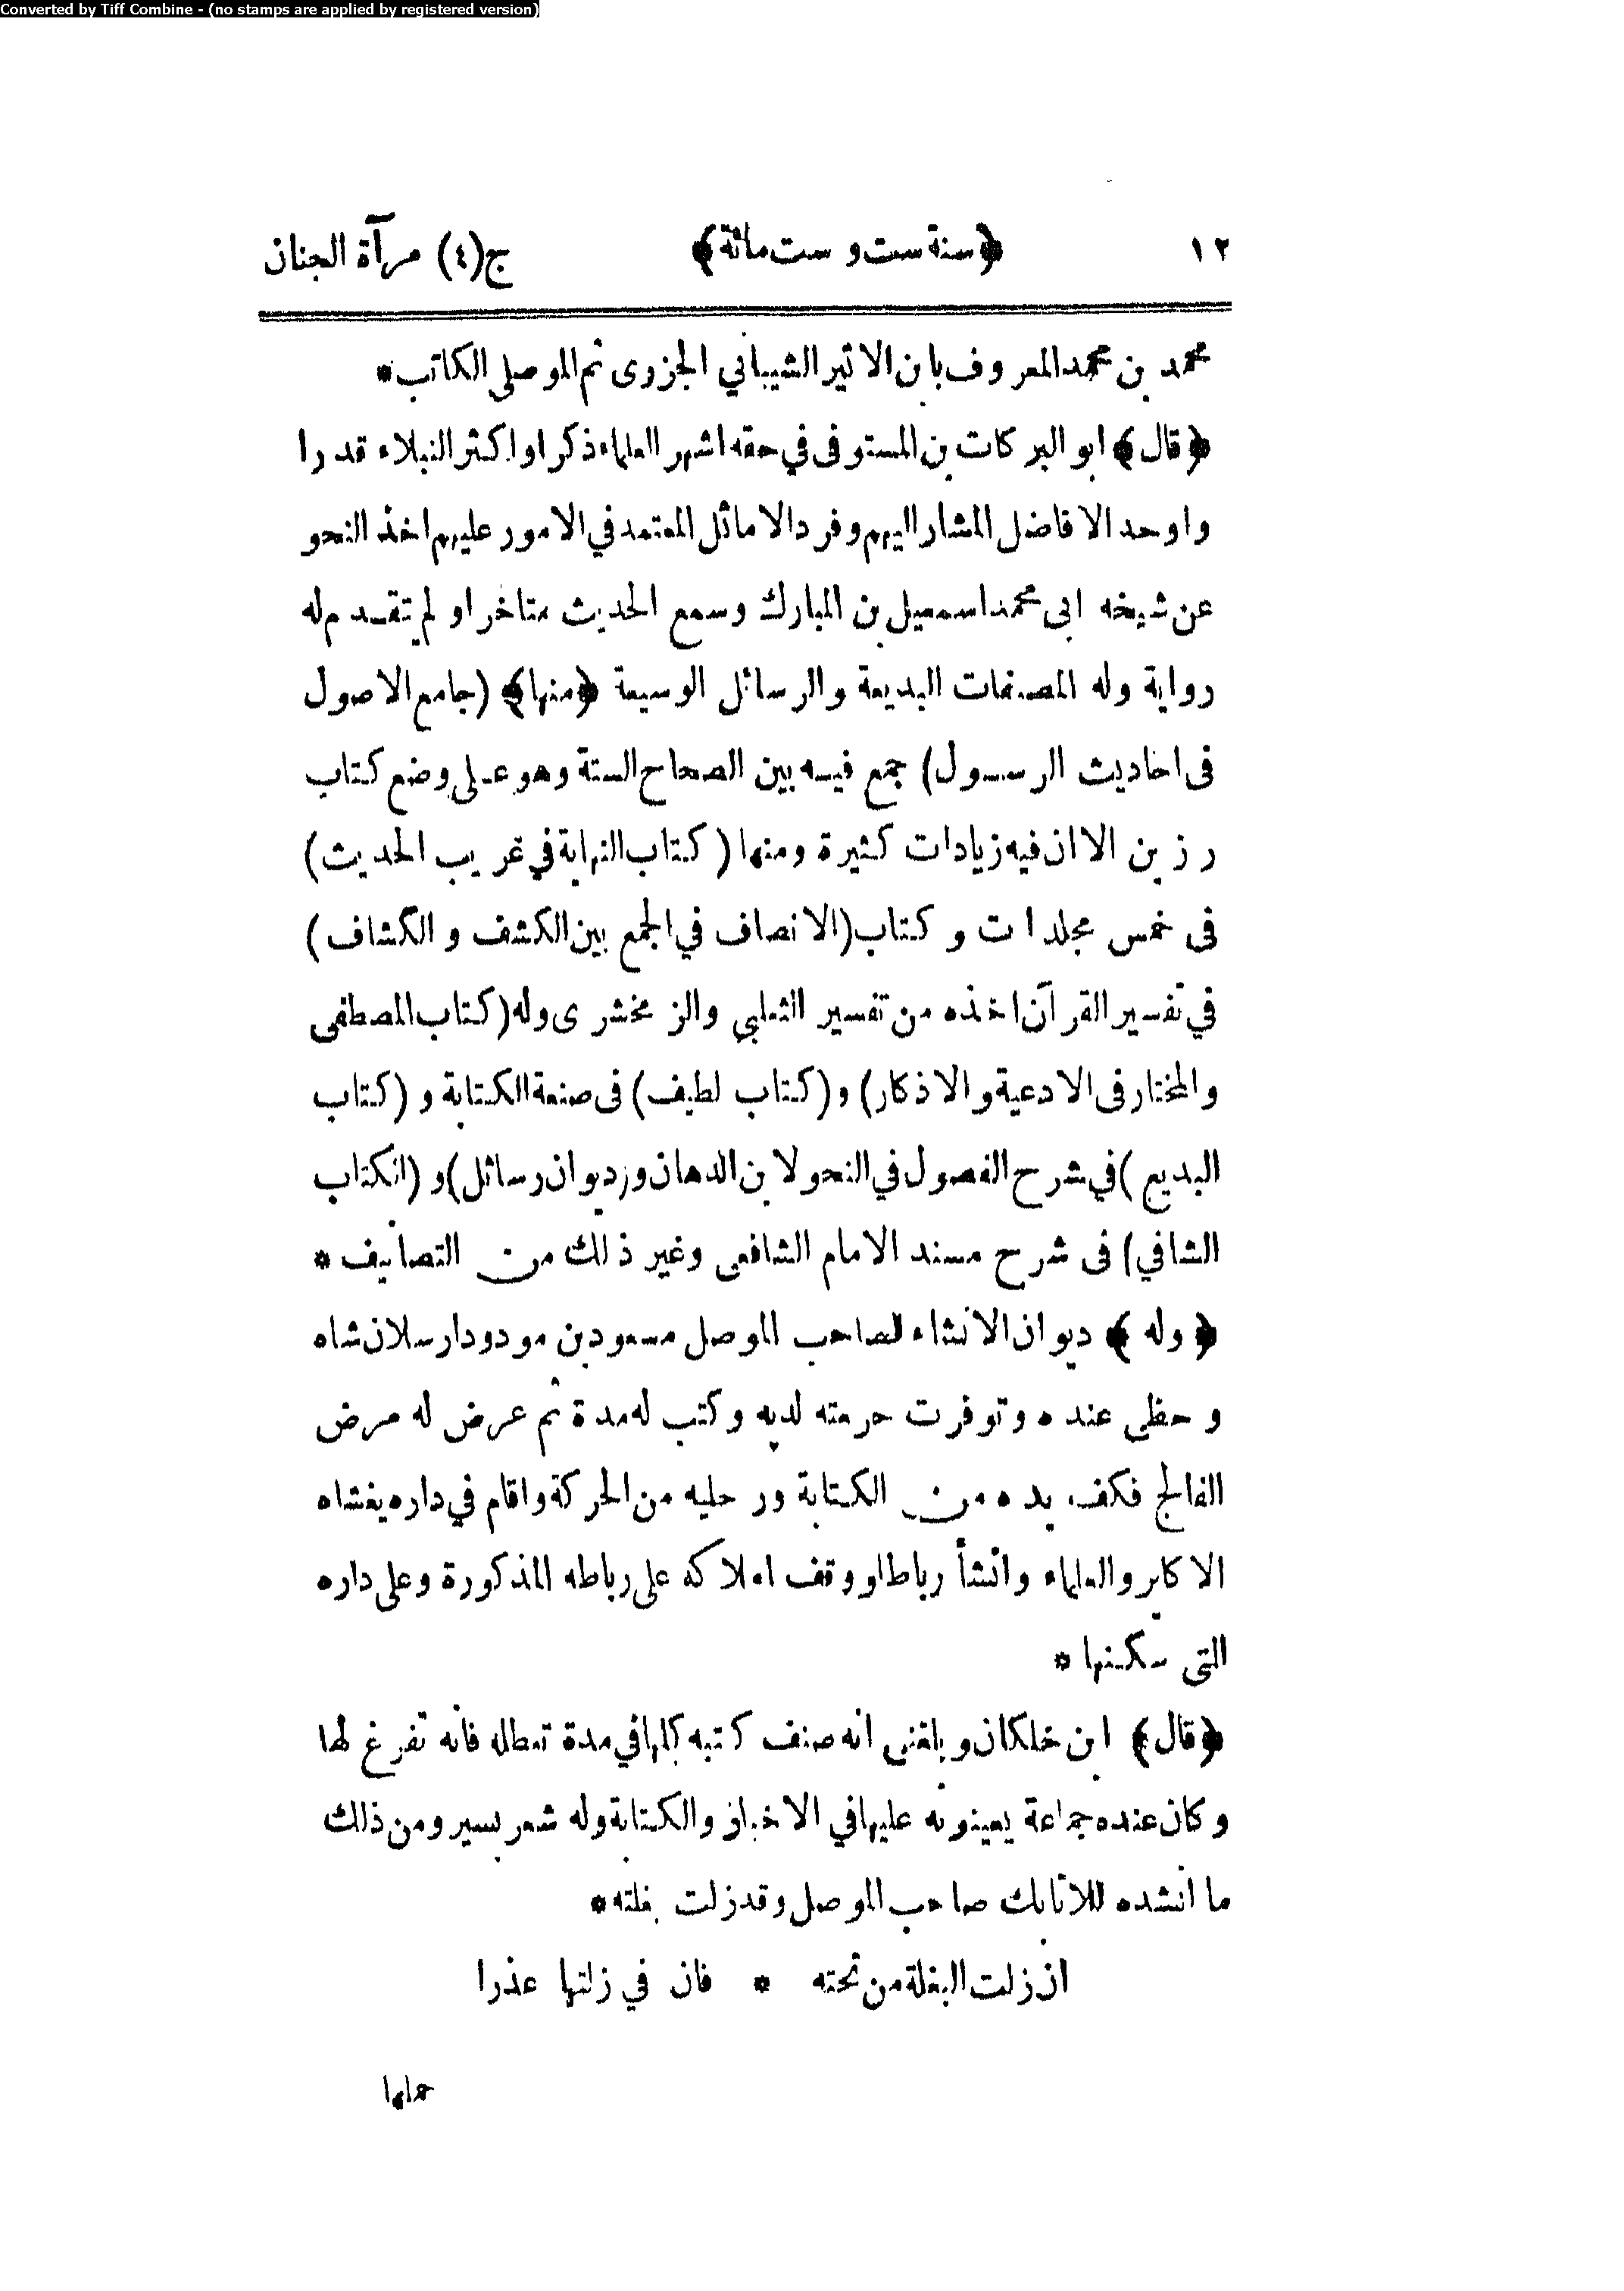 Converted by Tiff Combine - (no stamps are applied by registered version)
١٢ ﴿سنة ست و ست مائة﴾ ج(٤) مرآة الجنان
محمد بن محمد المعروف بابن الاثير الشيباني الجزرى ثم الموصلى الكاتب *
﴿قال﴾ ابو البركات بن المستوفى في حقه اشهر العلماء ذكرا واكثر النبلاء قدرا
واوحد الافاضل المشار اليهم وفرد الاماثل المعتمد في الامور عليهم اخذ النحو
عن شيخه ابى محمد اسمعيل بن المبارك وسمع الحديث متاخرا ولم يتقدم له
رواية وله المصنفات البديعة والرسائل الوسيعة ﴿منها﴾ (جامع الاصول
فى احاديث الرسول) جمع فيه بين الصحاح الستة وهو على وضع كتاب
رزين الا ان فيه زيادات كثيرة ومنها (كتاب النهاية في غريب الحديث)
فى خمس مجلدات و كتاب (الانصاف في الجمع بين الكشف و الكشاف)
في تفسير القرآن اخذه من تفسير الثعلبي والزمخشرى وله (كتاب المصطفى
والمختار فى الادعية والاذكار) و (كتاب لطيف) فى صنعة الكتابة و (كتاب
البديع) في شرح الفصول في النحو لابن الدهان و(ديوان رسائل) و (الكتاب
الشافي) فى شرح مسند الامام الشافعى وغير ذلك من التصانيف *
﴿وله﴾ ديوان الانشاء لصاحب الموصل مسعود بن مودود ارسلان شاه
و حظى عنده وتوفرت حرمته لديه وكتب له مدة ثم عرض له مرض
الفالج فكف يده من الكتابة ورجليه من الحركة واقام في داره يغشاه
الاكابر والعلماء وانشأ رباطا ووقف املاكه على رباطه المذكورة وعلى داره
التى سكنها *
﴿قال﴾ ابن خلكان وبلغنى انه صنف كتبه كلها في مدة تعطله فانه تفرغ لها
وكان عنده جماعة يعينونه عليها في الاخبار والكتابة وله شعر يسير ومن ذلك
ما انشده للاتابك صاحب الموصل وقد زلت بغلته *
ان زلت البغلة من تحته * فان في زلتها عذرا
حملها